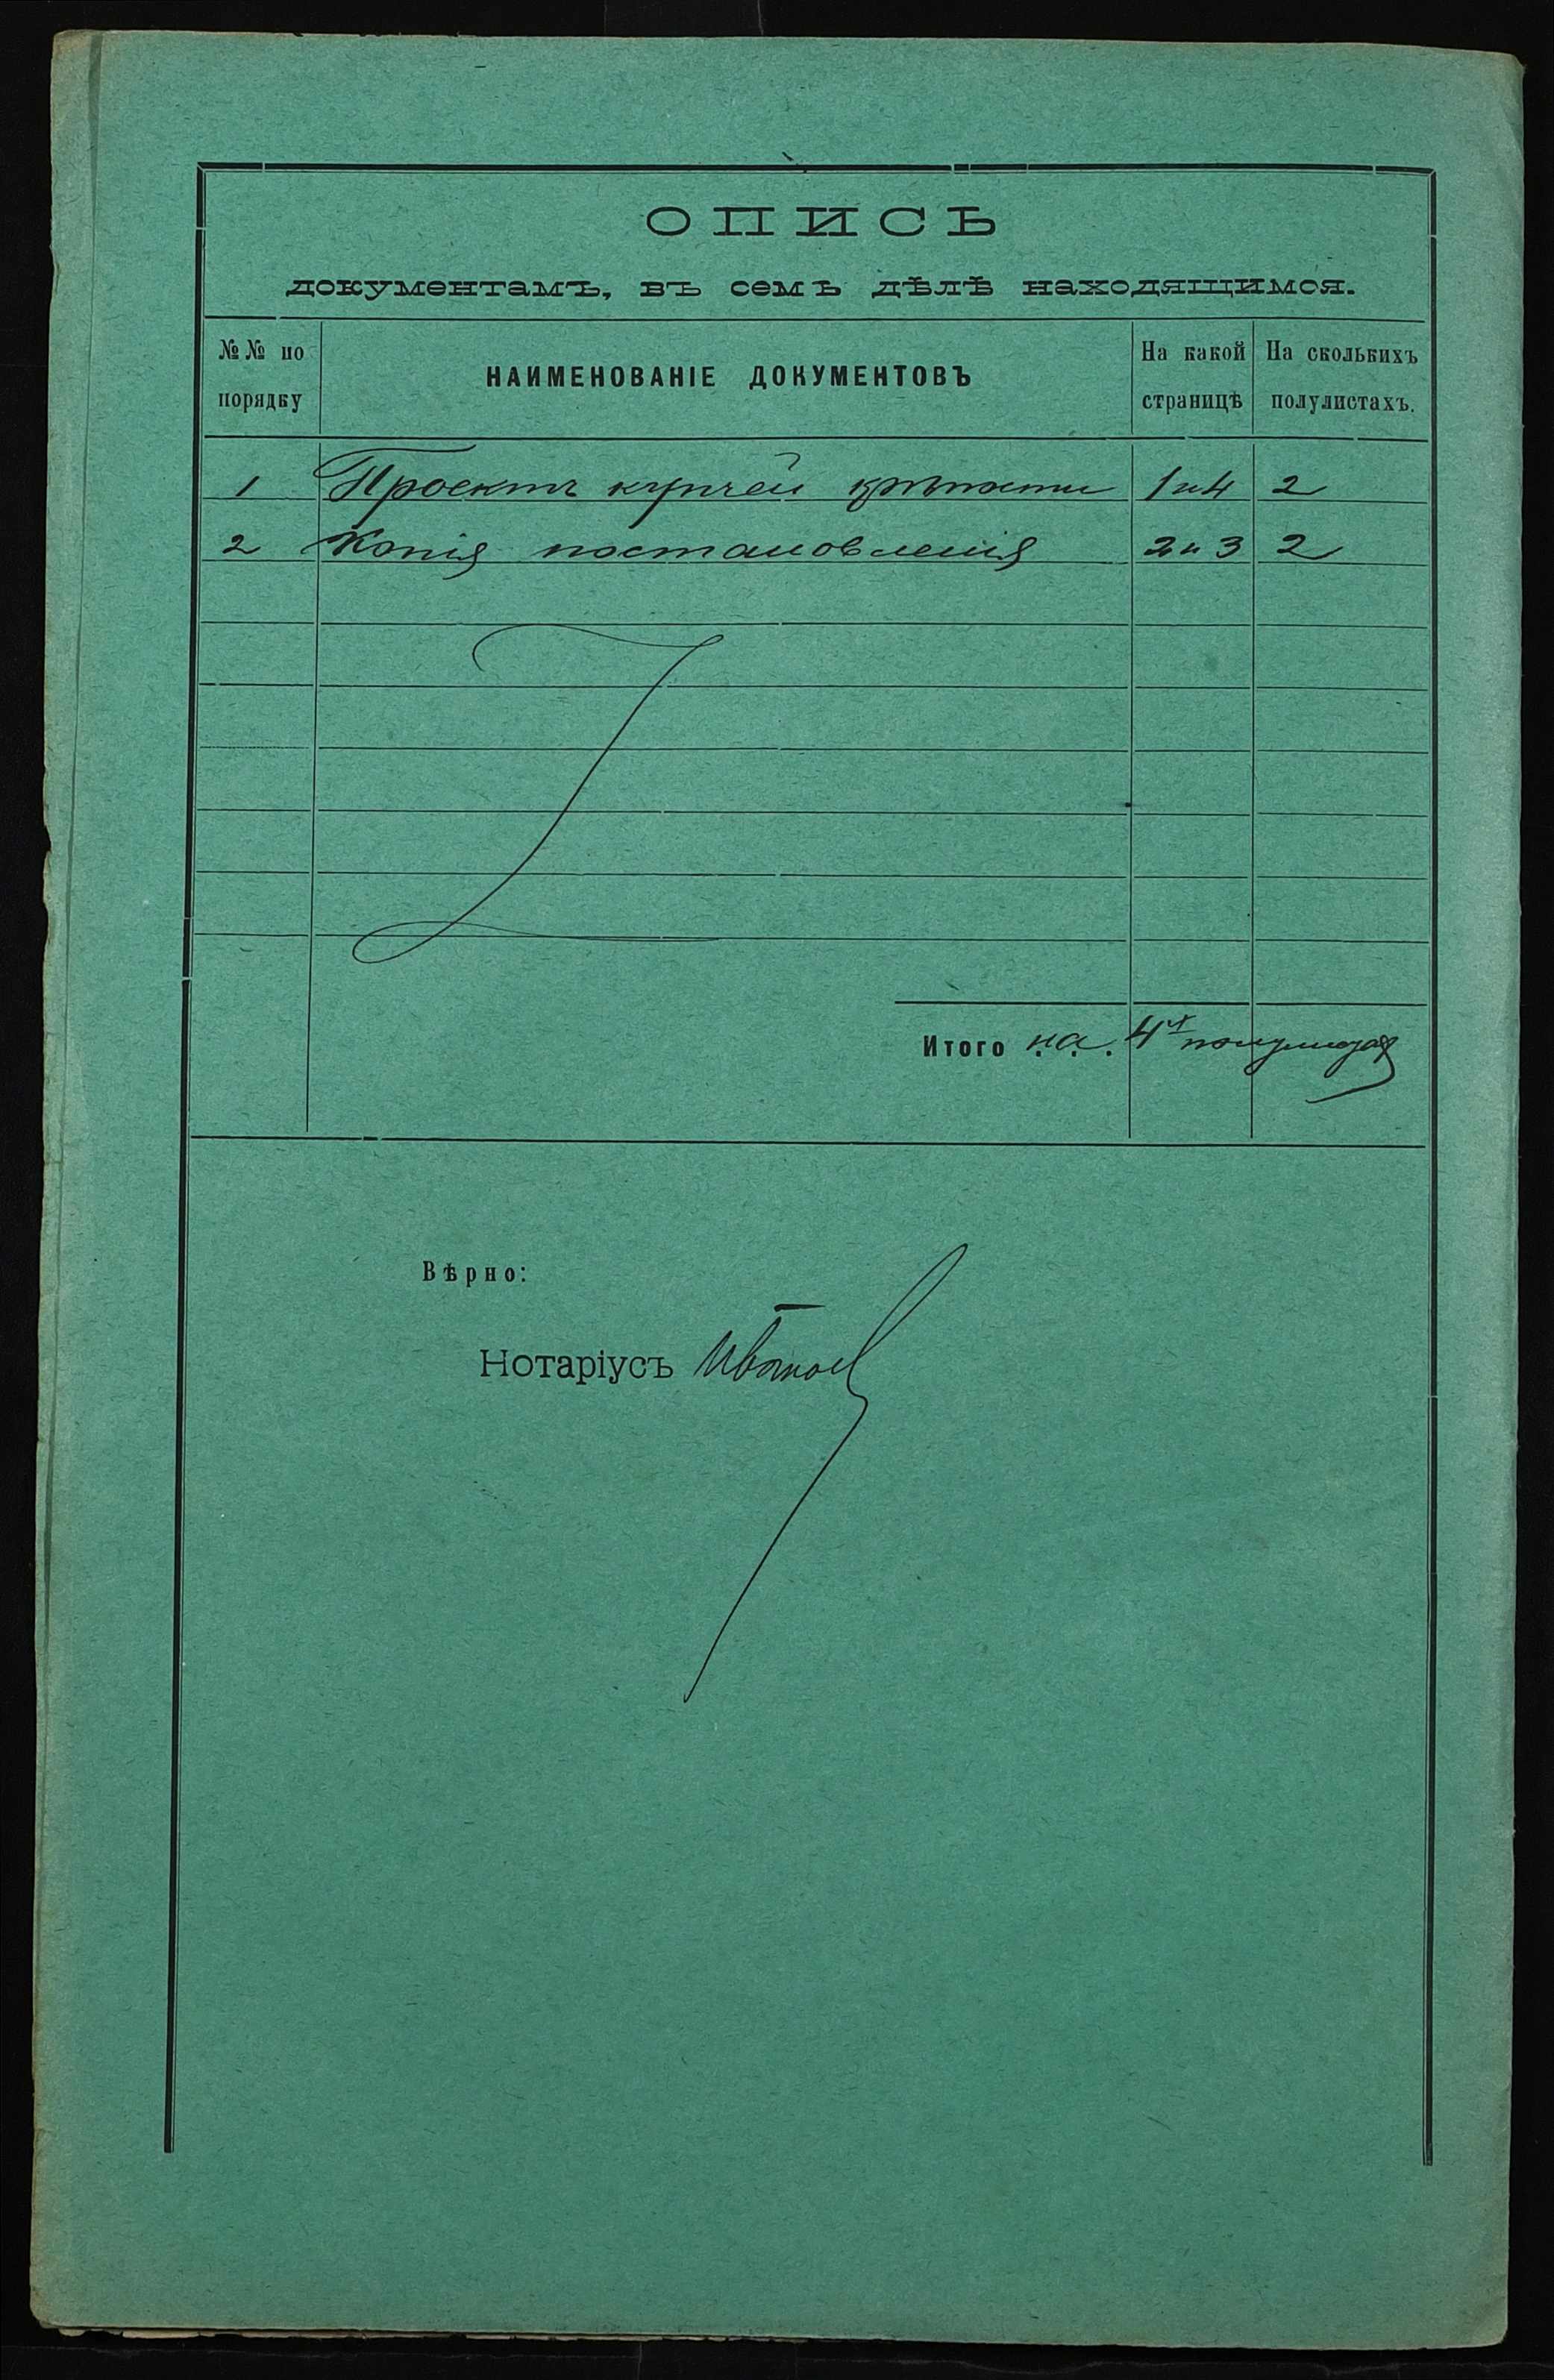 ОПИСЬ
документамъ, въ семъ дѣлѣ находящимся.
№№ по порядку
НАИМЕНОВАНІЕ ДОКУМЕНТОВЪ
На какой страницѣ
На сколькихъ полулистахъ.
1 Проектъ купчей крѣпости 1 и 4 2
2 Копія постановленія 2 и 3 2
Итого на 4х полулистах
Вѣрно:
Нотаріусъ Иванов